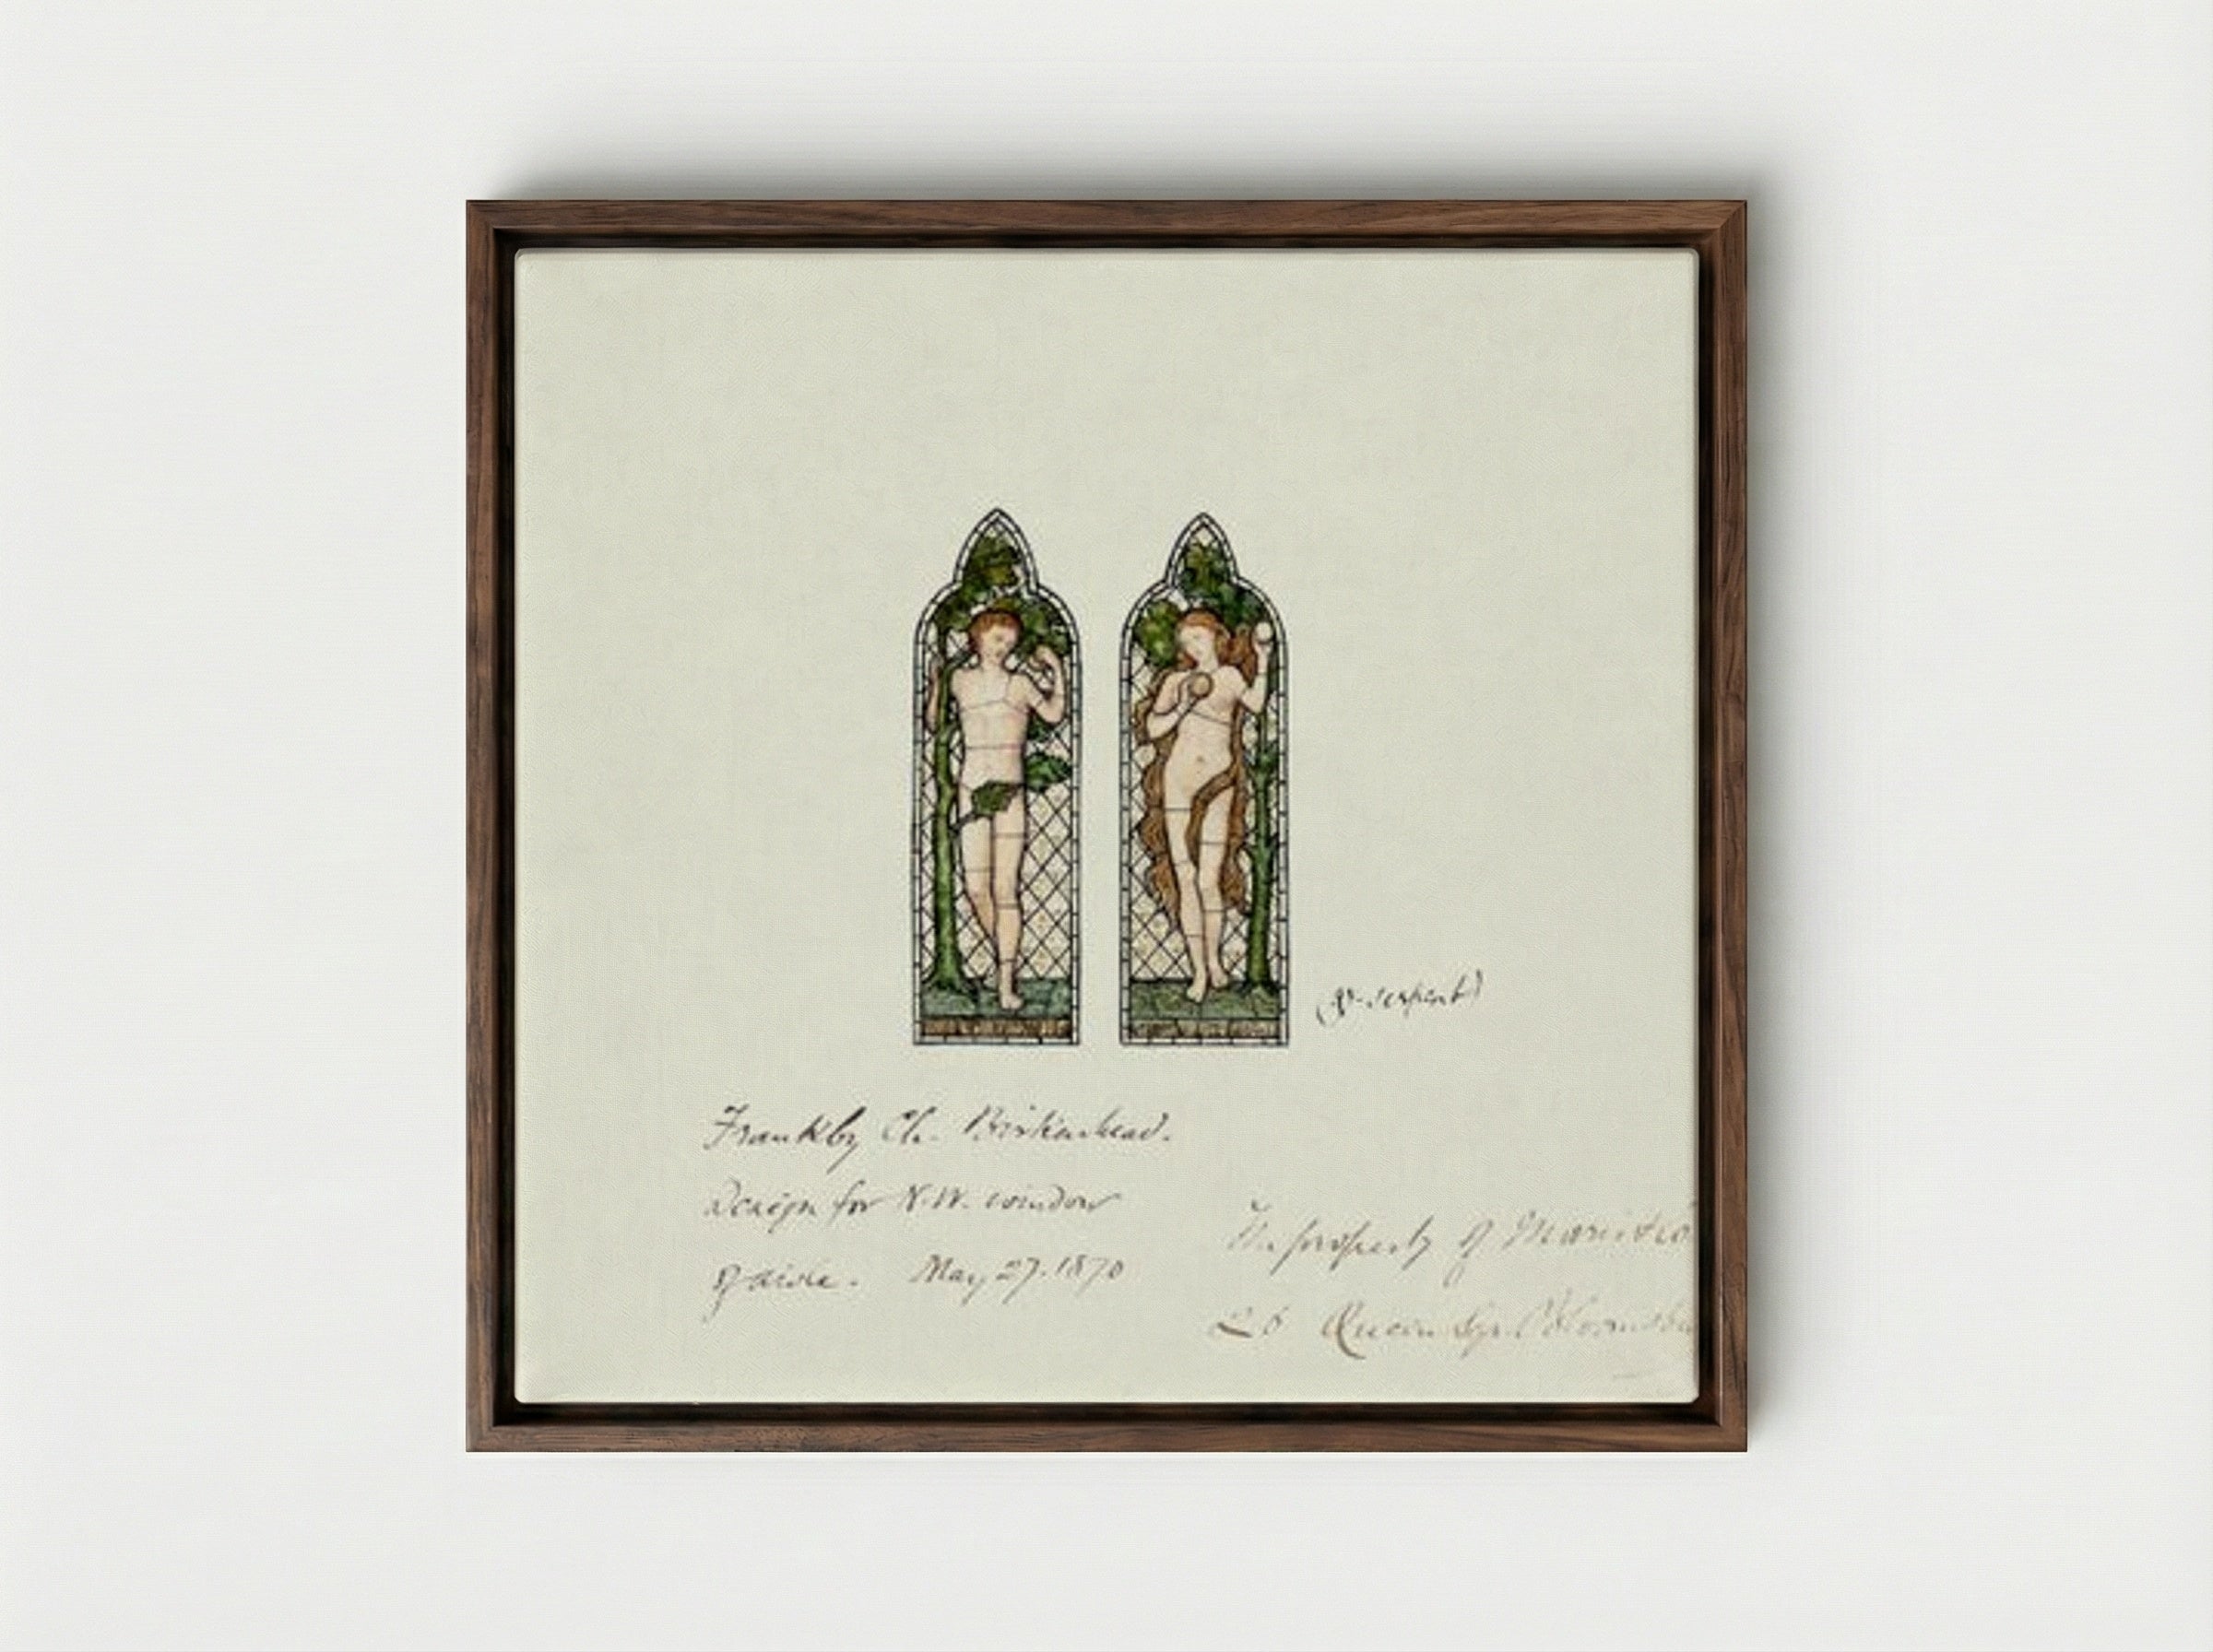 serpent)
Frankby Ch. Birkenhead.
Design for N.W. window
of aisle. May 27. 1870
The property of
26 Queen Sq. Bloomsbu